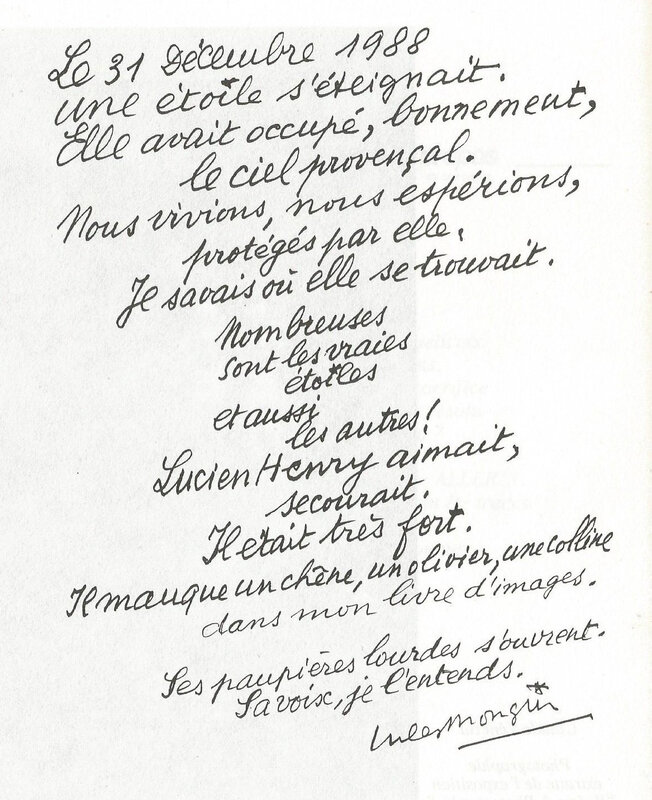 Le 31 Décembre 1988
une étoile s'éteignait.
Elle avait occupé, bonnement,
le ciel provençal.
Nous vivions, nous espérions,
protégés par elle.
Je savais où elle se trouvait.
Nombreuses
sont les vraies
étoiles
et aussi
les autres!
Lucien Henry aimait,
secourait.
Il était très fort.
Il manque un chêne, un olivier, une colline
dans mon livre d'images.
Ses paupières lourdes s'ouvrent.
Sa voix, je l'entends.
Jules Mougin